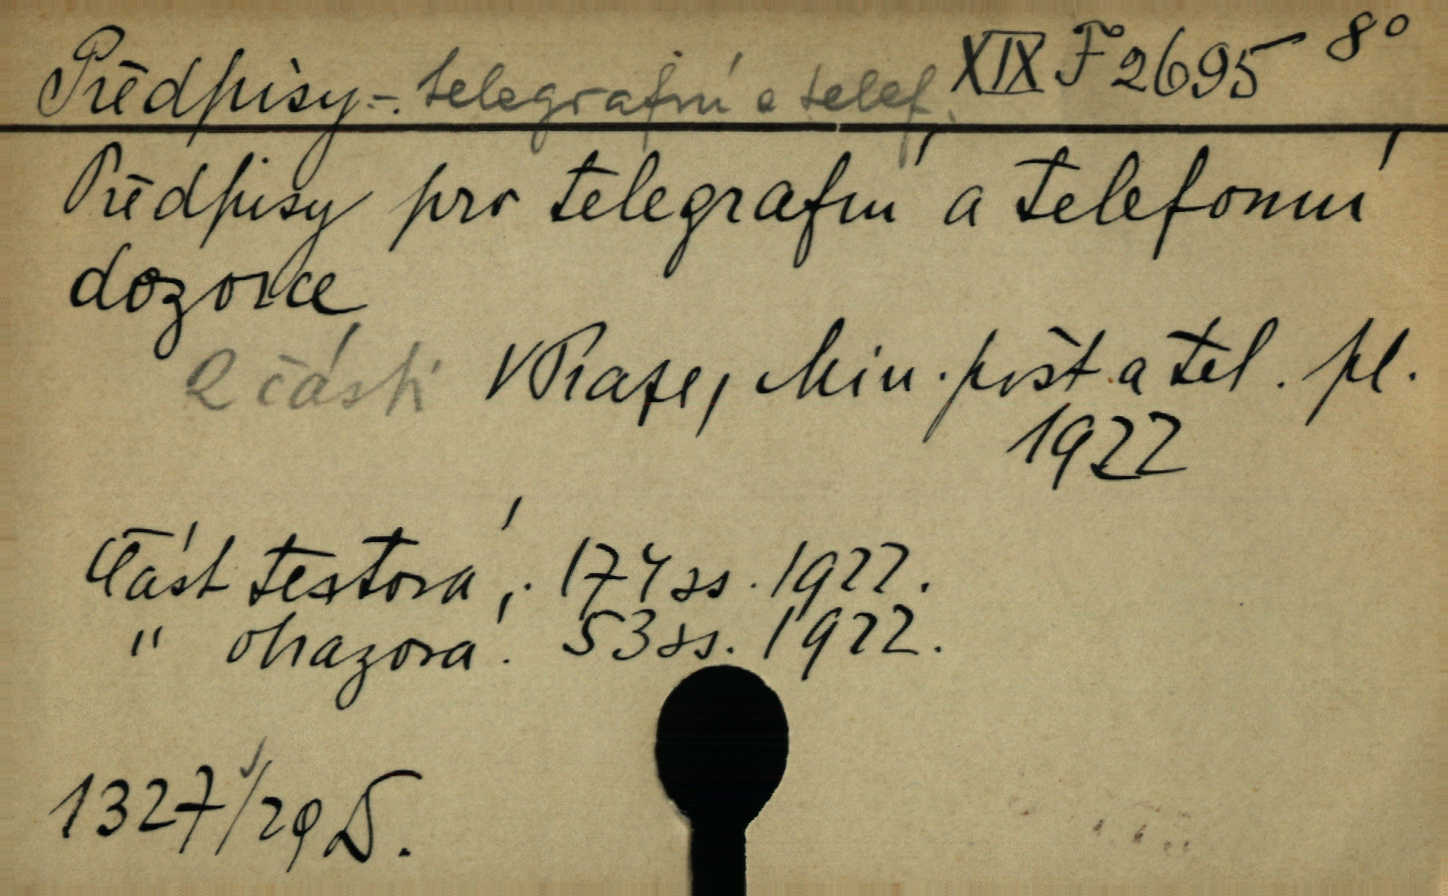 Předpisy -. telegrafní a telef. XIX F 2695 8°
Předpisy pro telegrafní a telefonní
dozorce
2 části V Praze, Min. pošt a tel. pl.
1922
Část textová, 174 ss. 1922.
" obrazová. 53 ss. 1922.
1327/29 D.